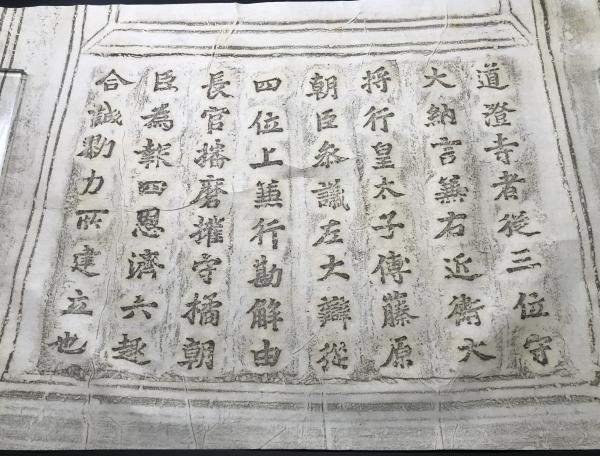 道澄寺者従三位守
大納言兼右近衛大
将行皇太子傅藤原
朝臣参議左大辯従
四位上兼行勘解由
長官播磨権守橘朝
臣為報四恩済六趣
合誠勠力所建立也